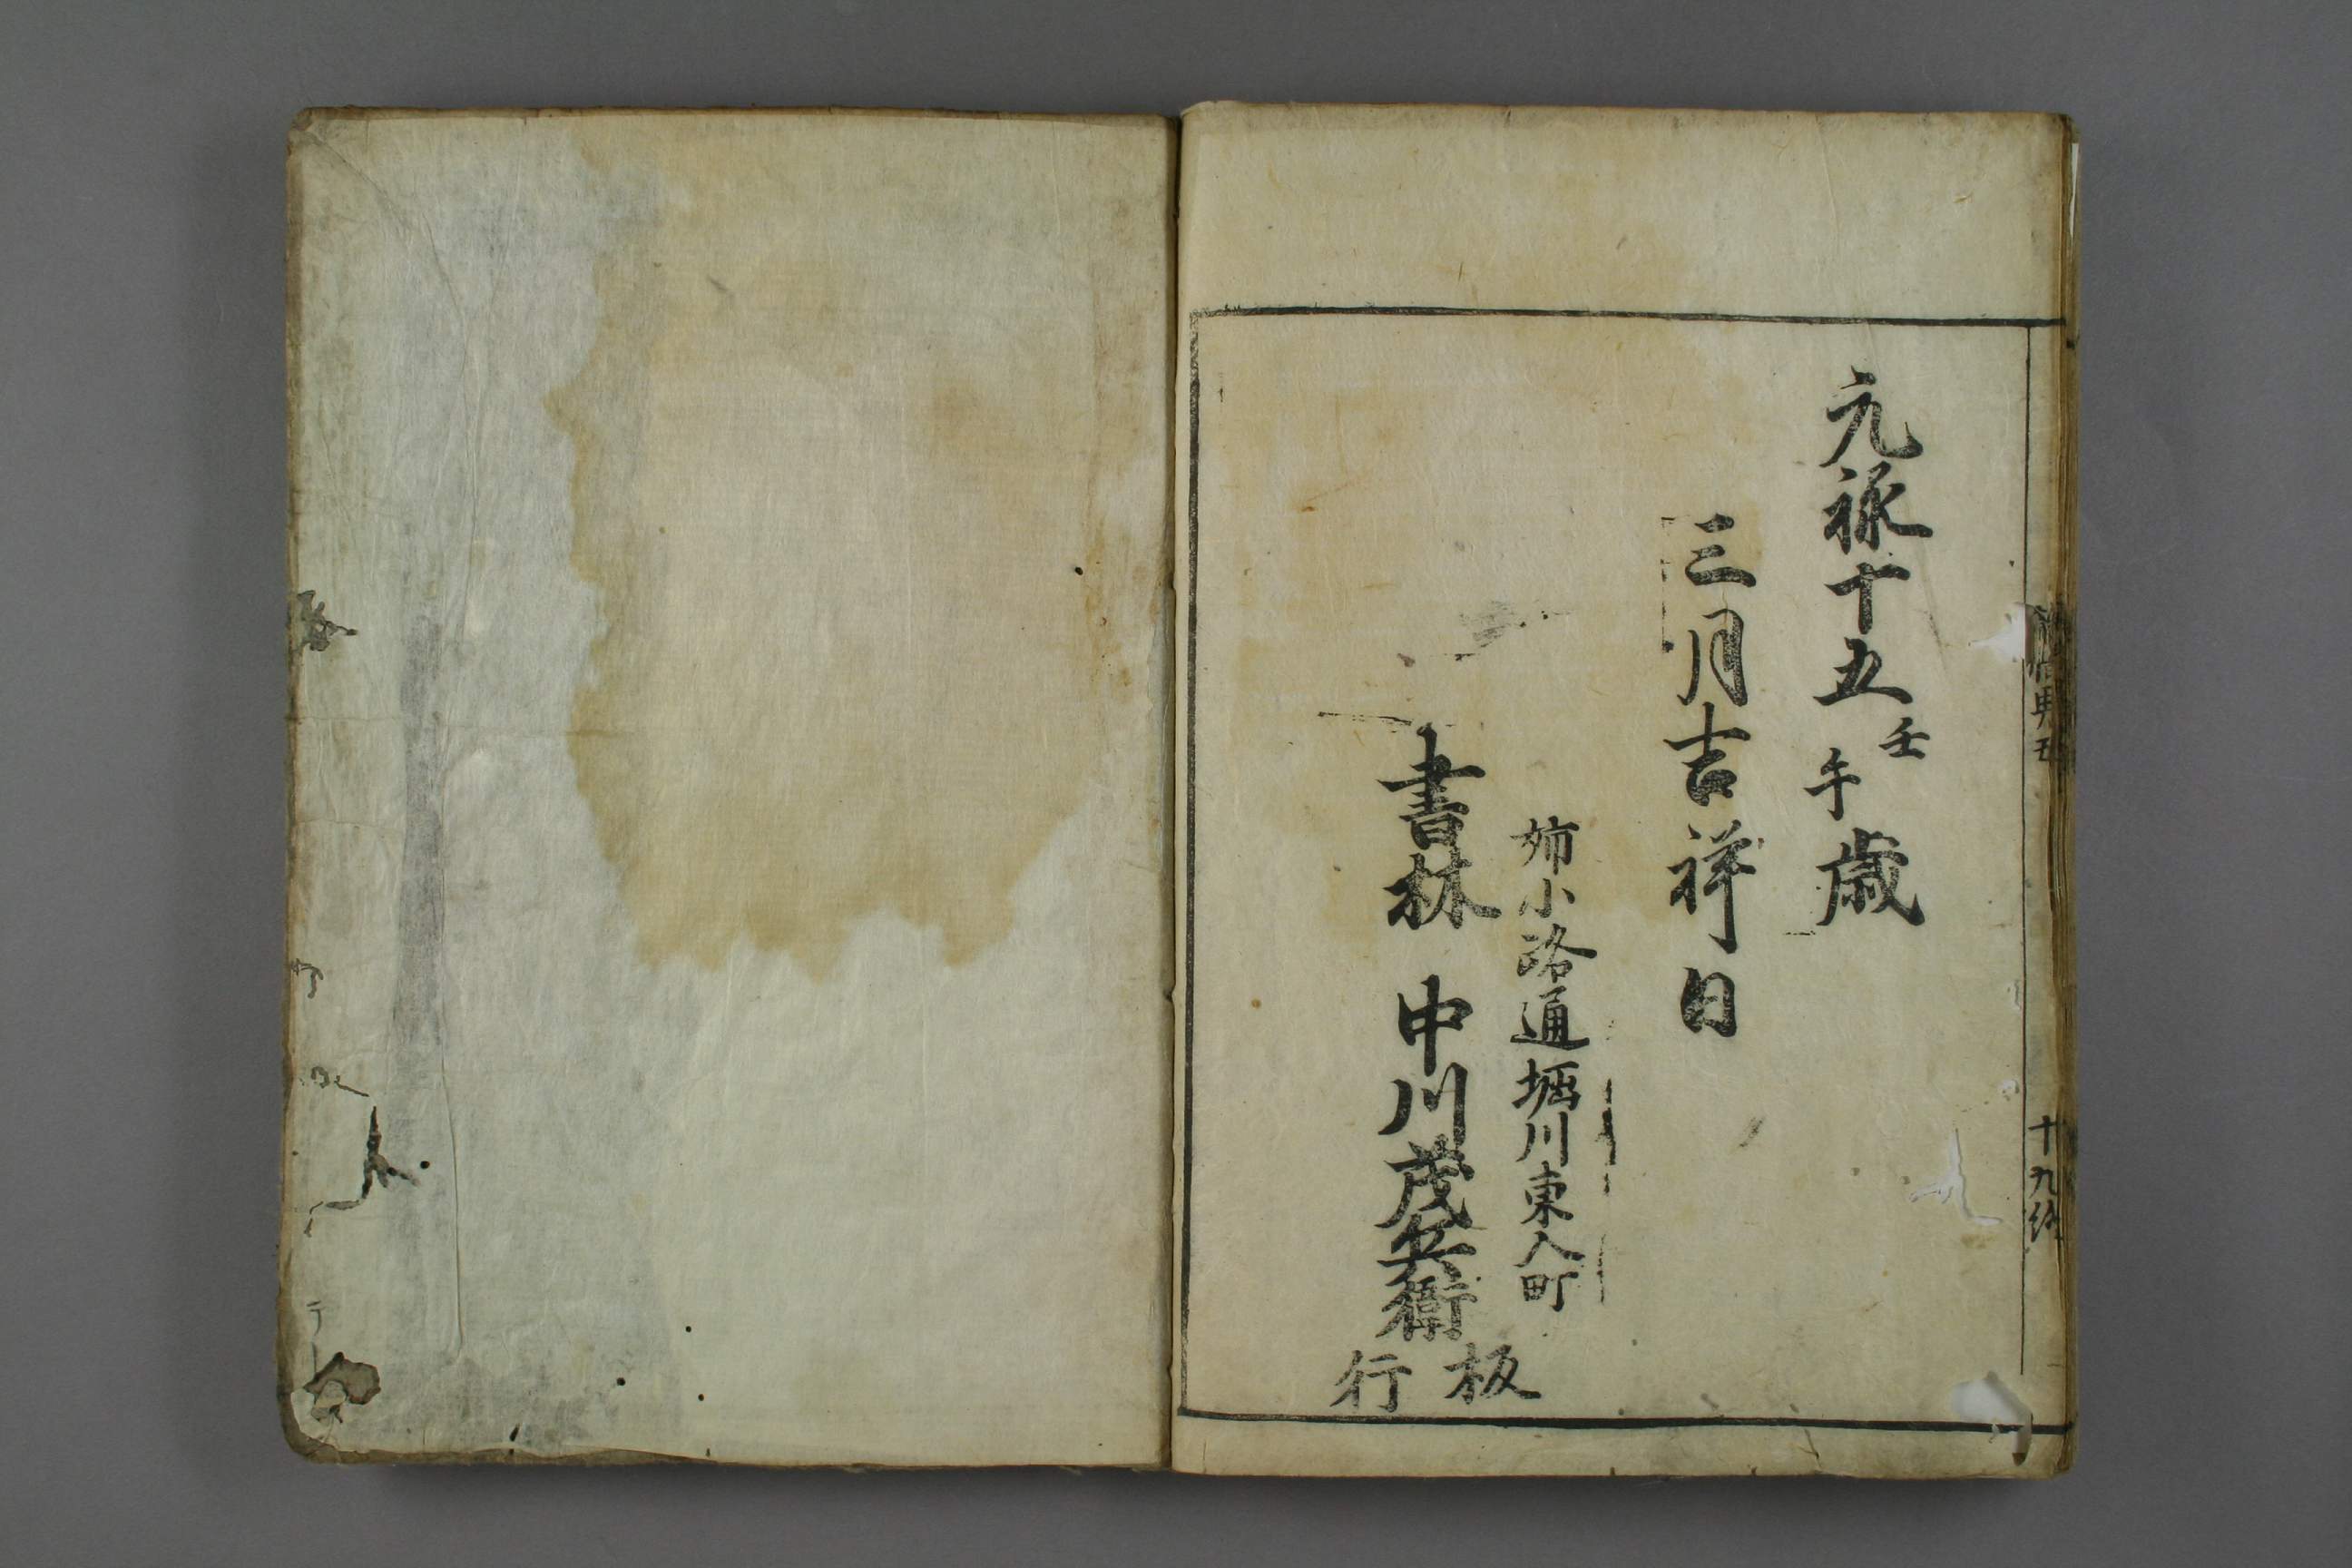 元祿十五壬午歳
三月吉祥日
姉小路通堀川東入町
書林 中川茂兵衛板行
十九終